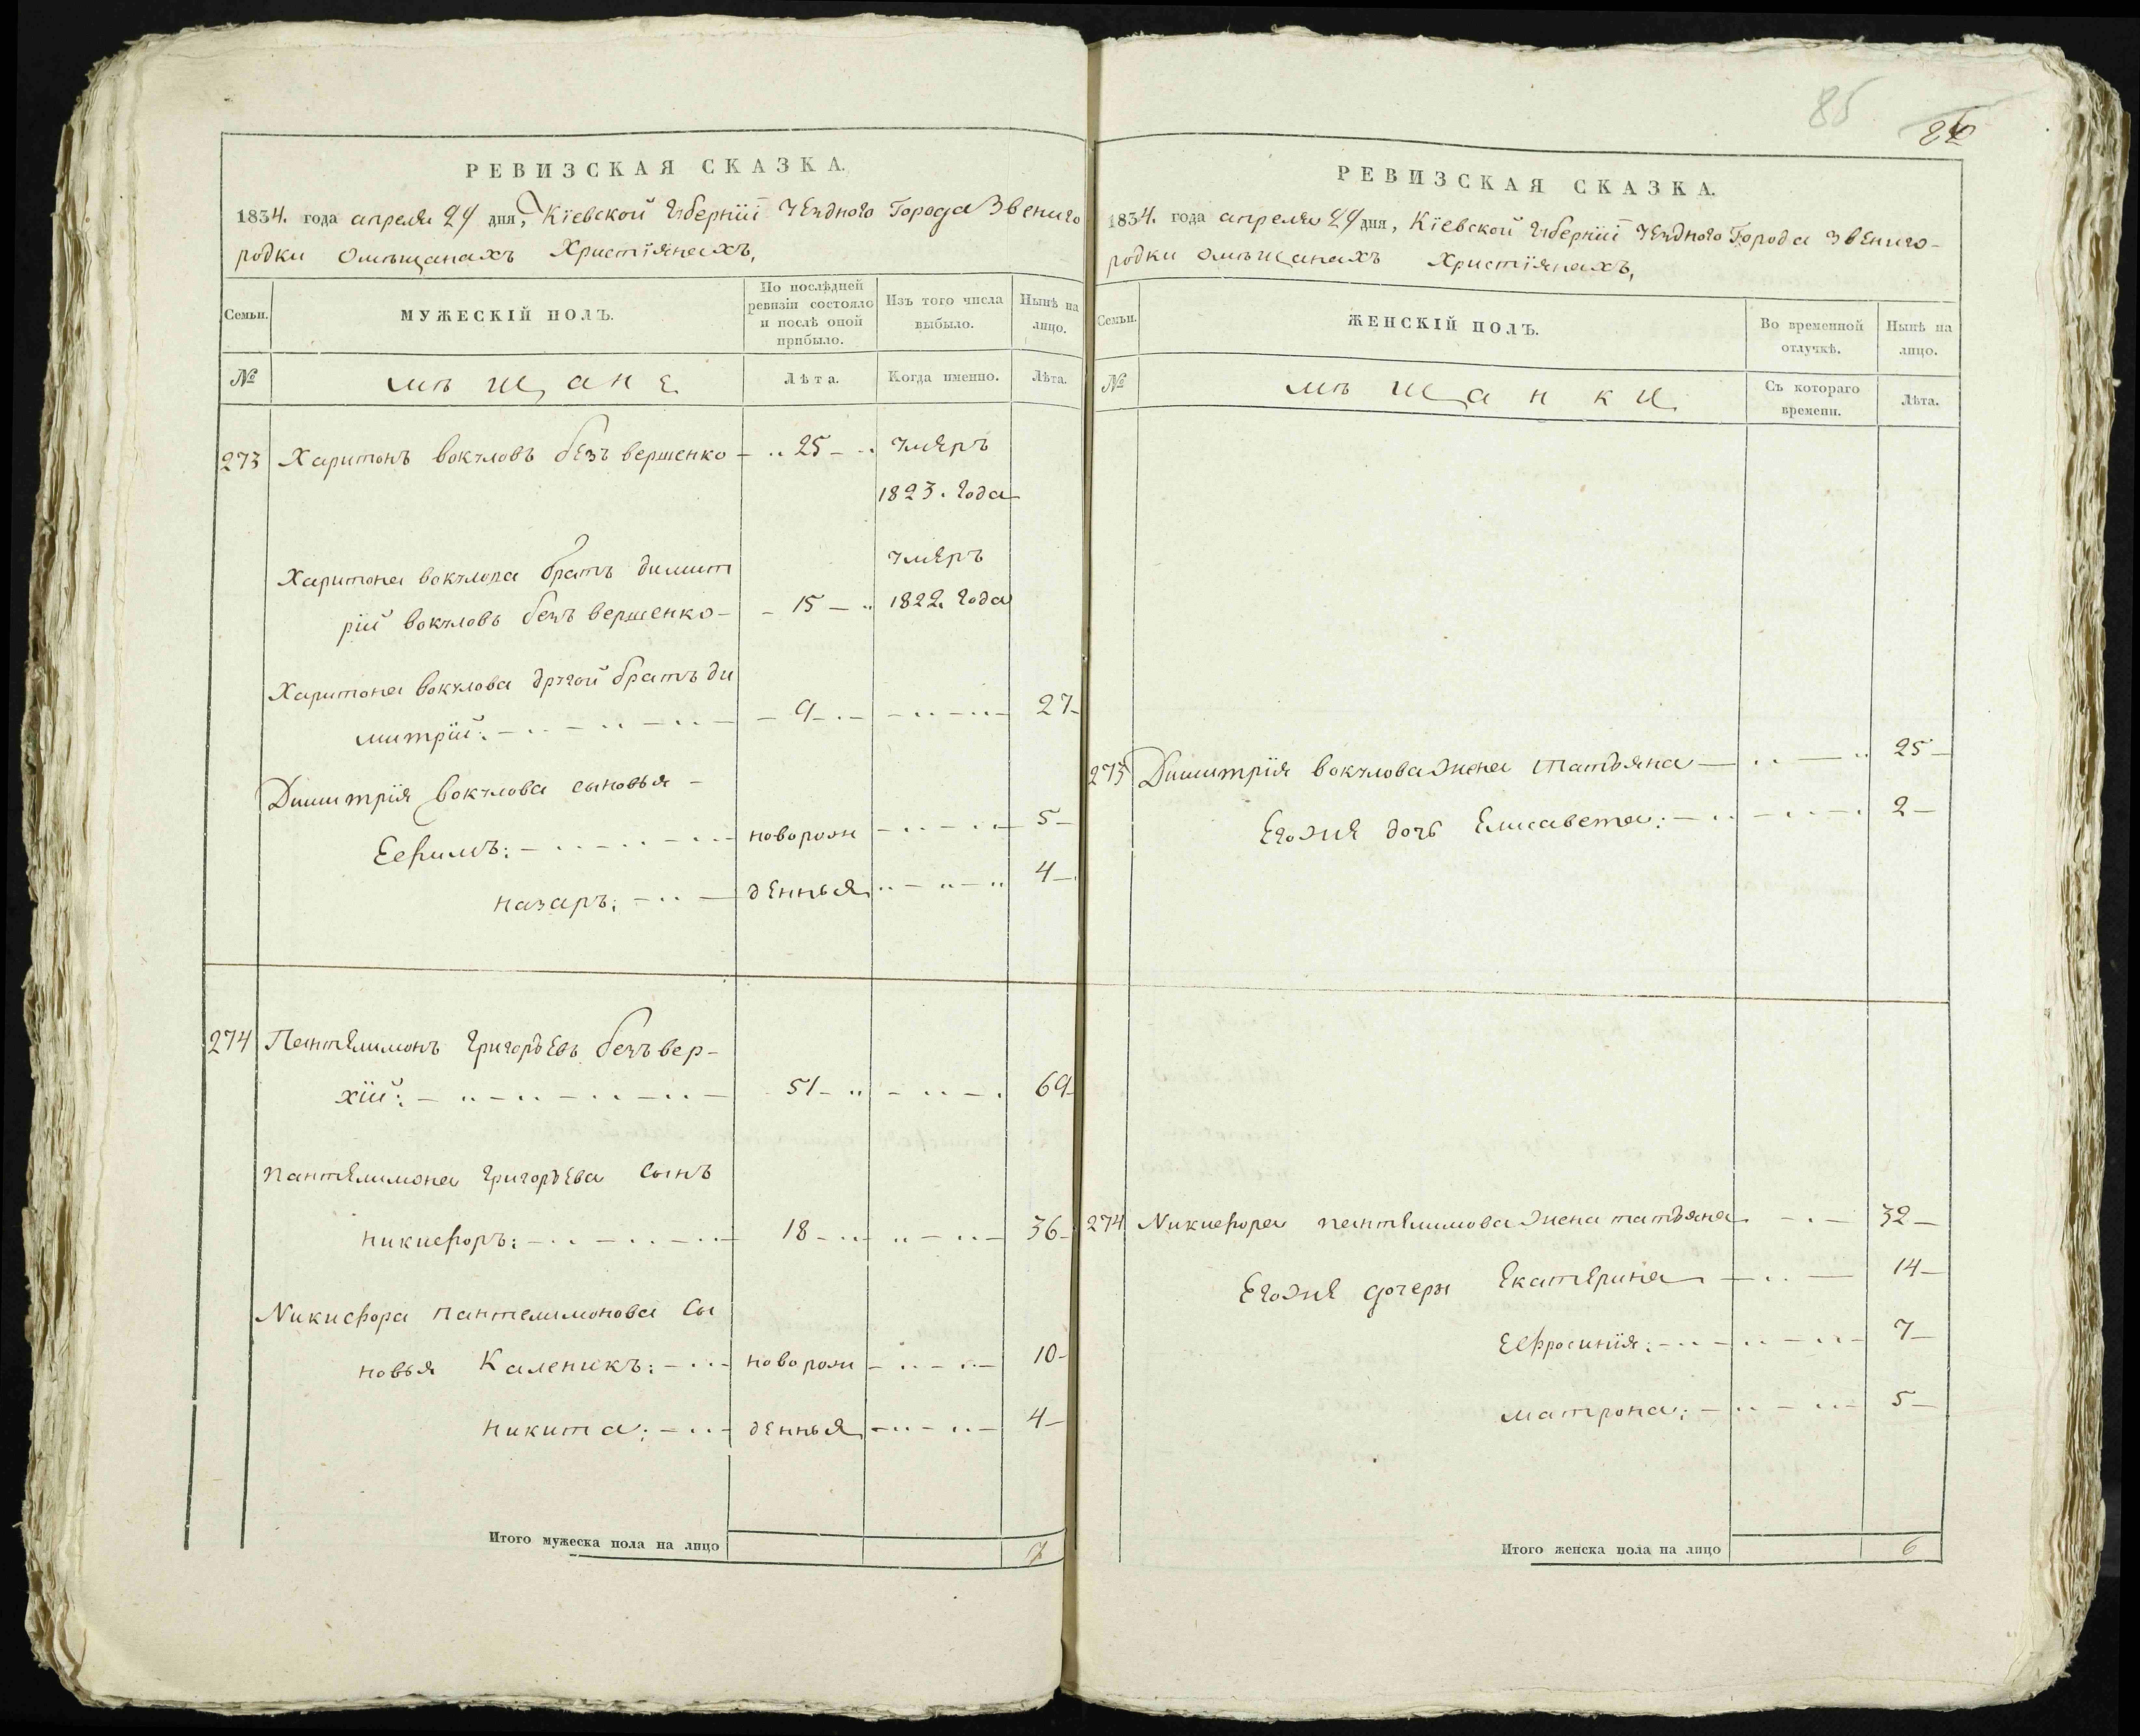 РЕВИЗСКАЯ СКАЗКА.
1834. года апреля 24 дня, Кіевской Губерніи Уезднаго Города Звениго
родки Омѣщанахъ Христіянахъ,
Семьи.
МУЖЕСКІЙ ПОЛЪ.
По послѣдней ревизіи состояло и послѣ оной прибыло.
Изъ того числа выбыло.
Нынѣ на лицо.
№
мѣщане
Лѣта.
Когда именно.
Лѣта.
273 Харитонъ вокуловъ безъ вершенко 25 умеръ
1823. года
Харитона вокулова братъ димит умеръ
рій вокуловъ безъ вершенко 15 1822. года
Харитона вокулова другой братъ ди
митрій: 9 27
Димитрія вокулова сыновья
Ефимъ: новорож 5
назаръ: денныя 4
274 Пантелимонъ григорьевъ безъ вер-
хій: 51 69
пантелимона григорьева сынъ
никифоръ: 18 36
Никифора пантелимонова сы
новья Каленикъ: новорож 10
никита: денныя 4
Итого мужеска пола на лицо 7
85
РЕВИЗСКАЯ СКАЗКА.
1834. года апреля 24 дня, Кіевской Губерніи Уезднаго Города Звениго-
родки Омѣщанахъ Христіянахъ,
Семьи.
ЖЕНСКІЙ ПОЛЪ.
Во временной отлучкѣ.
Нынѣ на лицо.
№
мѣщанки
Съ котораго времени.
Лѣта.
273 Димитрія вокулова жена татьяна 25
Егоже дочь Елисавета: 2
274 Никифора пантелимова жена татьяна 32
Егоже дочери Екатерина 14
Ефросинія: 7
матрона: 5
Итого женска пола на лицо 6